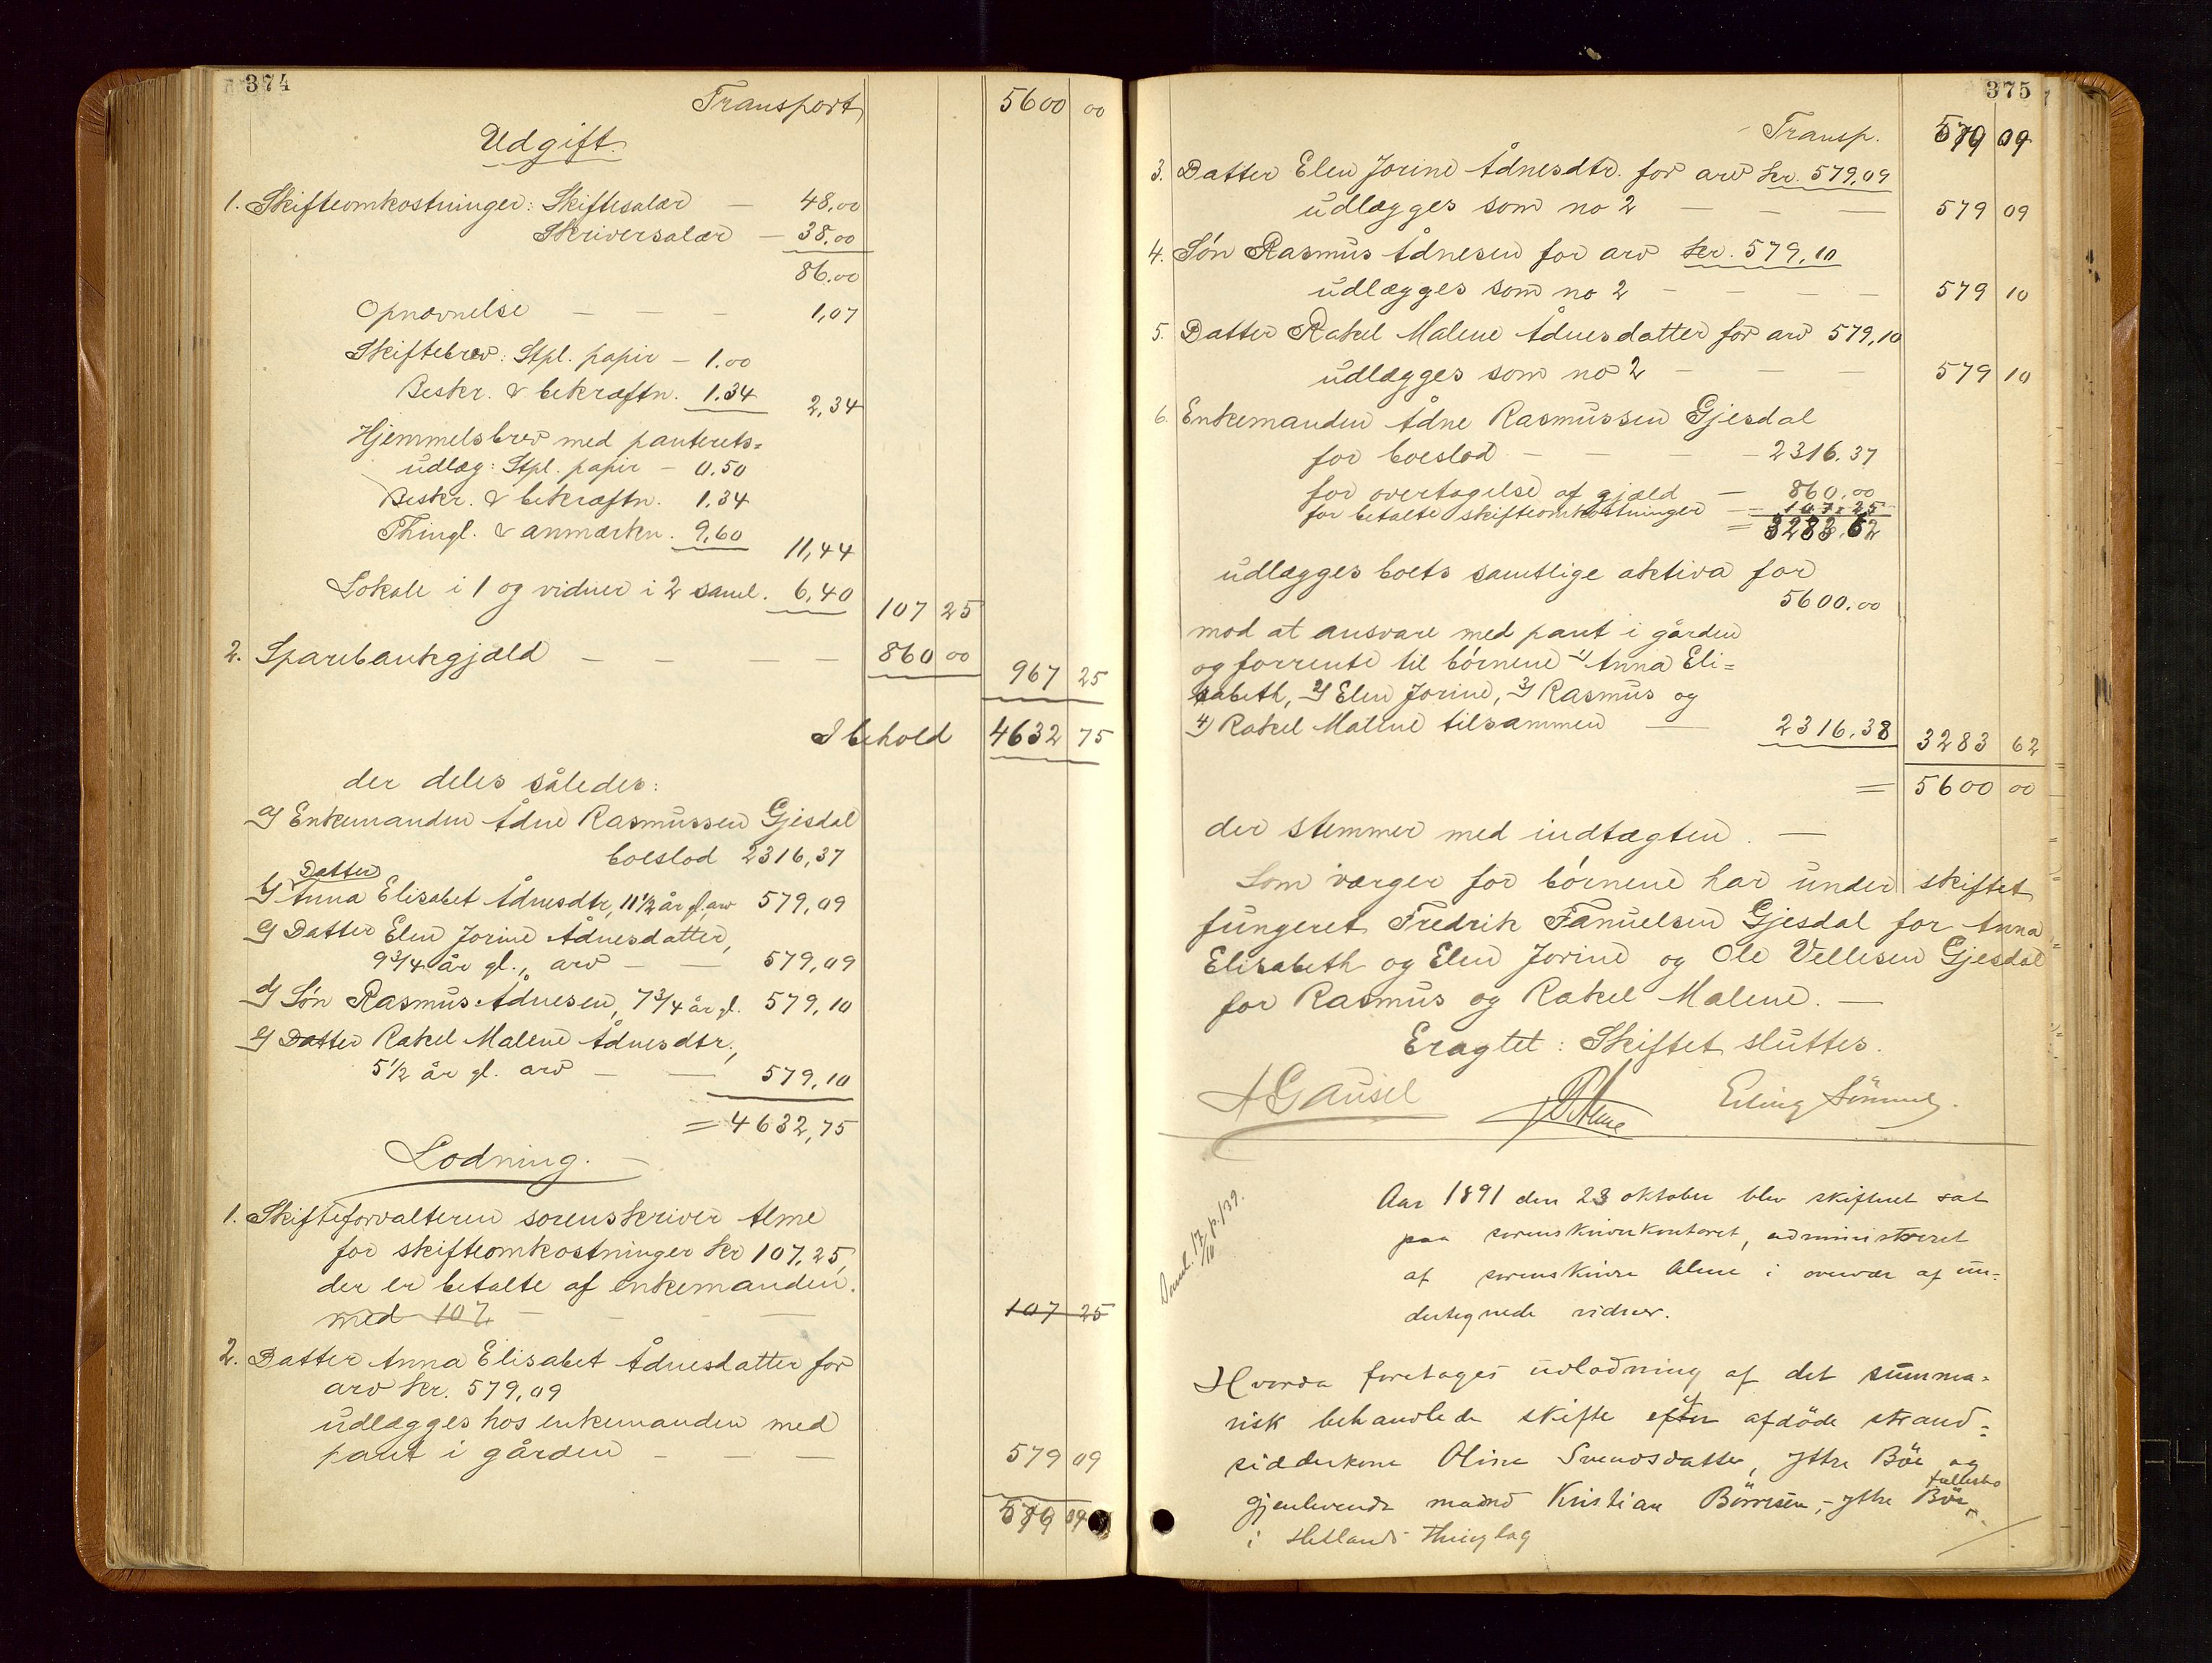 374
Transport 5600 00
Udgift.
1. Skifteomkostninger: Skiftesalær — 48,00
Skriversalær — 38,00
86,00
Opnævnelse — — — 1,07
Skiftebrev: Stpl. papir — 1.00
Beskr. & bekræftn. 1.34 2,34
Hjemmelsbrev med panterets=
udlæg: Stpl. papir — 0.50
Beskr. & bekræftn. 1.34
Thingl. & anmærkn. 9,60 11,44
Lokale i 1 og vidner i 2 saml. 6,40 107 25
2. Sparebankgjæld — — — — 860 00 967 25
I behold 4632 75
der deles således:
a) Enkemanden Ådne Rasmussen Gjesdal
boeslod 2316,37
Datter
b) Anna Elisabet Ådnesdtr, 11 1/2 år gl., arv 579,09
c) Datter Elen Jorine Ådnesdatter,
9 3/4 år gl., arv — — 579,09
d) Søn Rasmus Ådnesen, 7 3/4 år gl. 579,10
e) Datter Rakel Malene Ådnesdtr.,
5 1/2 år gl. arv — — 579,10
= 4632,75
Lodning. —
1. Skifteforvalteren sorenskriver Alme
for skifteomkostninger kr 107,25,
der er betalte af enkemanden.
med 107, — — — 107 25
2. Datter Anna Elisabet Ådnesdatter for
arv kr. 579,09
udlægges hos enkemanden med
pant i gården — — — 579 09
579 09
375
Transp. 579 09
3. Datter Elen Jorine Ådnesdtr. for arv kr. 579,09
udlægges som no 2 — — — 579 09
4. Søn Rasmus Ådnesen for arv kr. 579,10
udlægges som no 2 — — — — 579 10
5. Datter Rakel Malene Ådnesdatter for arv 579,10
udlægges som no 2 — — — 579 10
6. Enkemanden Ådne Rasmussen Gjesdal
for boeslod — — — — 2316.37
for overtagelse af gjæld — 860.00
for betalte skifteomkostninger — 107.25
= 3283.62
udlægges boets samtlige aktiva for
5600.00
mod at ansvare med pant i gården
og forrente til børnene 1) Anna Eli=
sabeth, 2) Elen Jorine, 3) Rasmus og
4) Rakel Malene tilsammen — 2316.38 3283 62
= 5600 00
der stemmer med indtægten. —
Som værger for børnene har under skiftet
fungeret Fredrik Fanuelsen Gjesdal for Anna
Elisabeth og Elen Jorine og Ole Vellesen Gjesdal
for Rasmus og Rakel Malene. —
Eragtet: Skiftet sluttes.
A Gausel Alme Erling Sömme.
Aar 1891 den 23 oktober blev skifteret sat
paa sorenskriverkontoret, administreret
af sorenskriver Alme i overvær af un=
dertegnede vidner.
17/10 p. 139.
Hvorda foretages udlodning af det summa=
risk behandlede skifte efter afdöde strand=
sidderkone Oline Svendsdatter, Ytre Böe og
gjenlevende mand Kristian Börresen, - Ytre Böe
fællesbo
i Hetlands thinglag